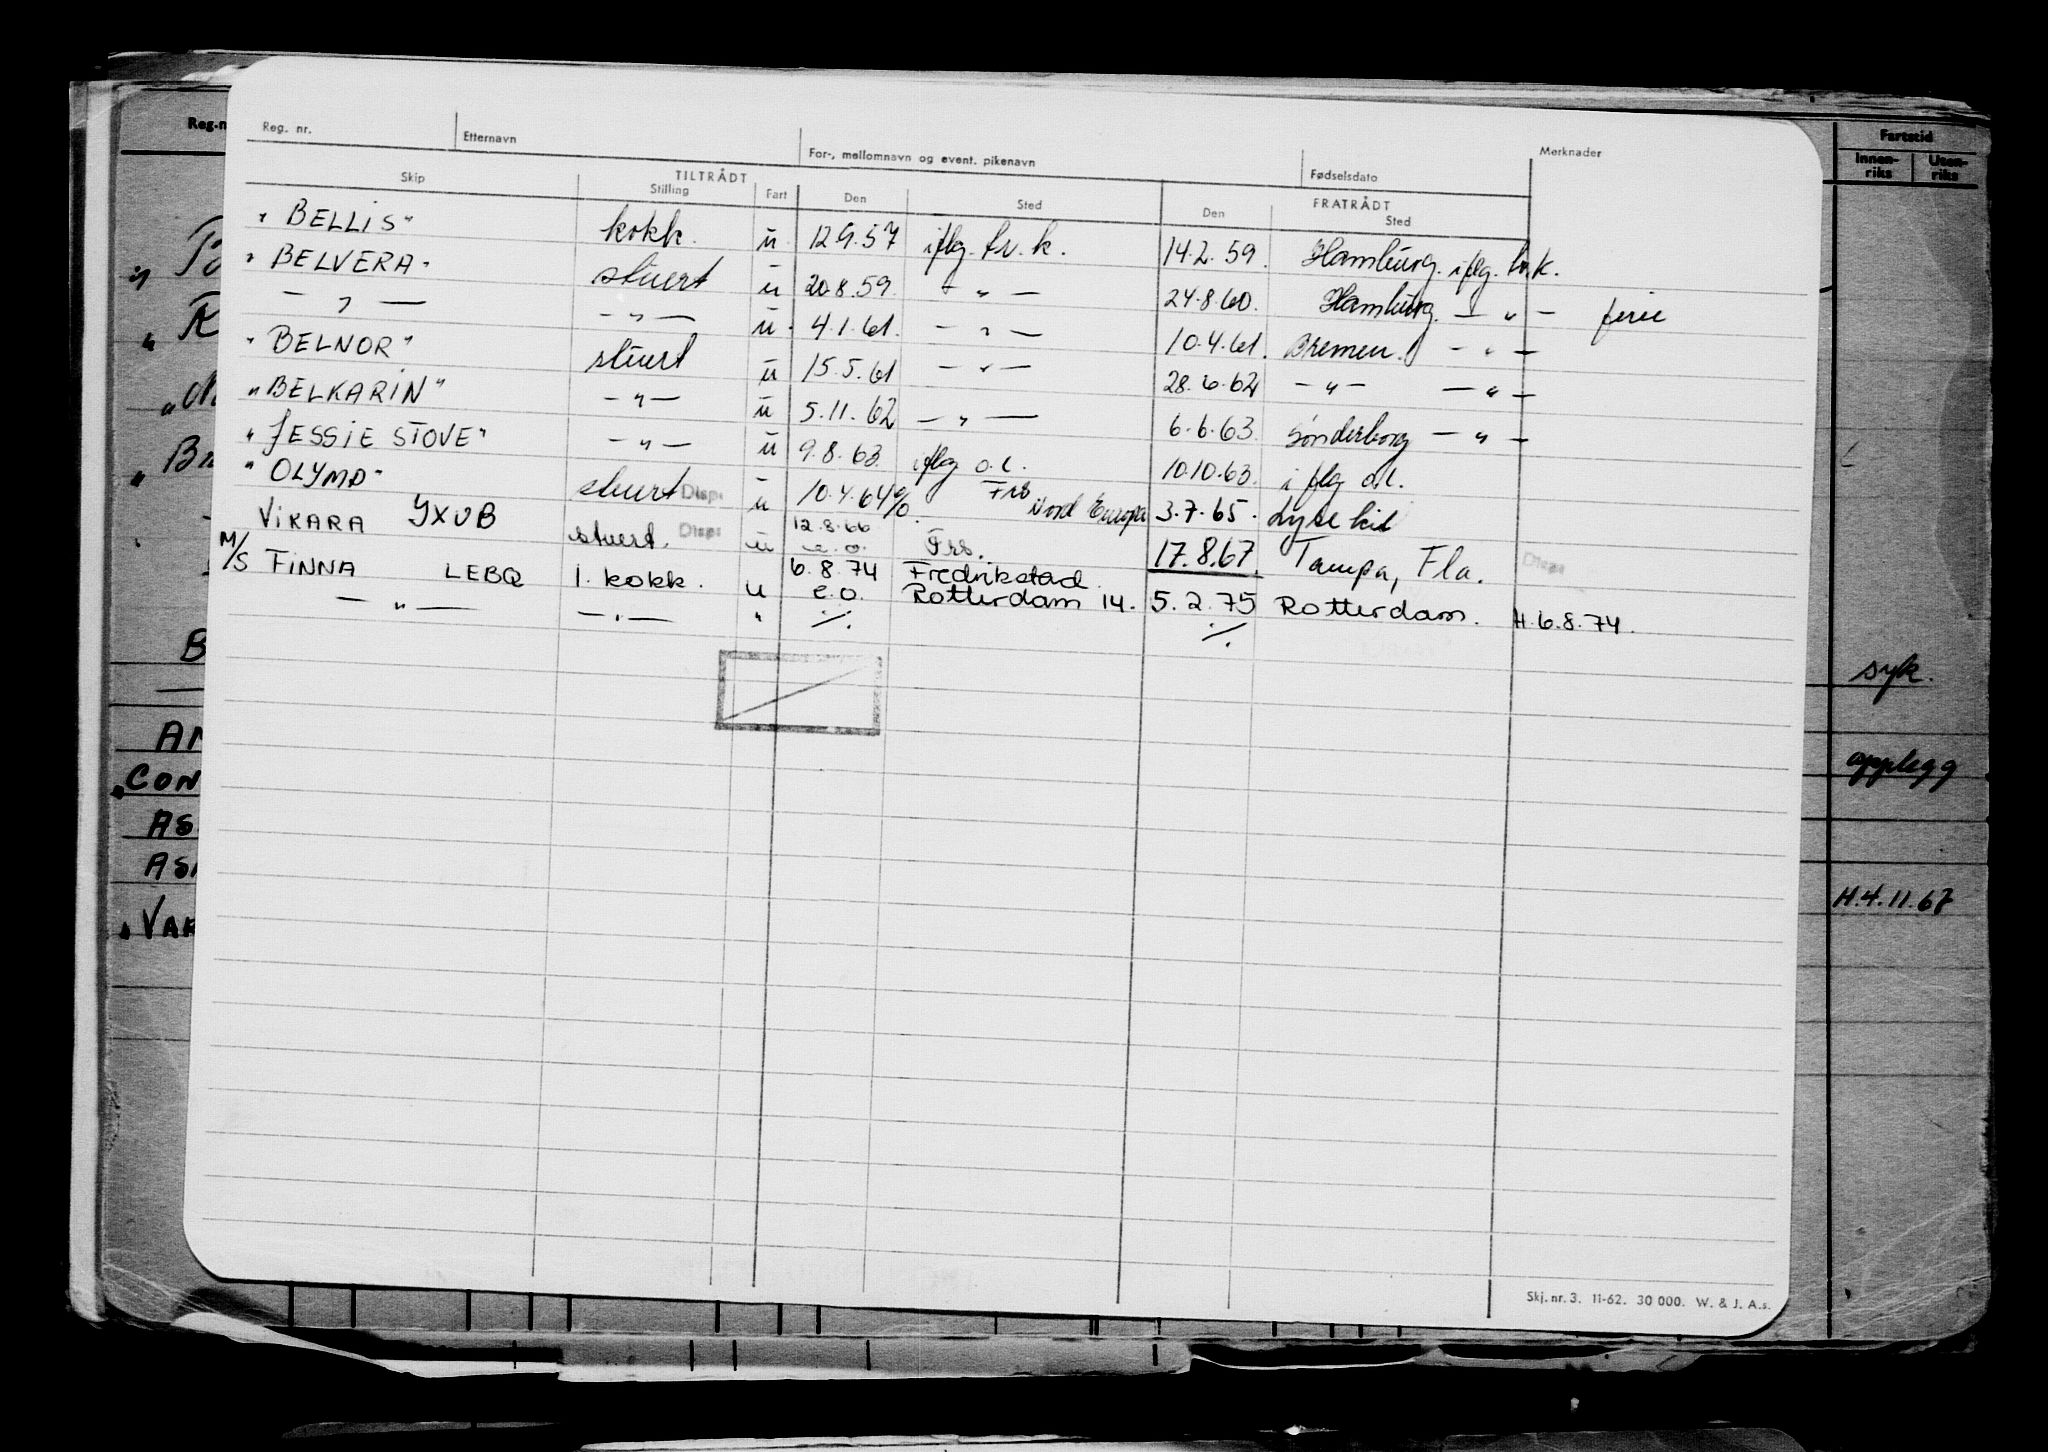 Reg. nr. Etternavn For-, mellomnavn og event. pikenavn Fødselsdato Merknader
Fartstid
Innen-riks Uten-riks
TILTRÅDT FRATRÅDT
Skip Stilling Fart Den Sted Den Sted
"BELLIS" kokk. u. 12.9.57 iflg. hv. k. 14.2.59. Hamburg. iflg. hv. k.
"BELVERA" stuert u 20.8.59 — " — 24.8.60. Hamburg. — " — ferie
— " — — " — u. 4.1.61. — " — 10.4.61. Bremen. — " —
"BELNOR" stuert u 15.5.61 — " — 28.6.62 — " — — " —
"BELKARIN" — " — u 5.11.62 — " — 6.6.63 Sønderborg — " —
"JESSIE STOVE" — " — u 9.8.63 iflg o.l. 10.10.63. iflg o.l.
"OLYMP" stuert u 10.4.64 % Frs. Nord Europa 3.7.65. Lysekil
VIKARA JXUB stuert. u 12.8.66 e.o. Frs. 17.8.67. Tampa, Fla.
M/S FINNA LEBQ 1. kokk. u 6.8.74 e.o. Fredrikstad. 5.2.75 Rotterdam. H. 6.8.74.
— " — — " — " ·/. Rotterdam 14. ·/.
syk.
AN
opplegg
CON
AS
AS
H.4.11.67
VAR
Skj. nr. 3. 11-62. 30 000. W. & J. A.s.